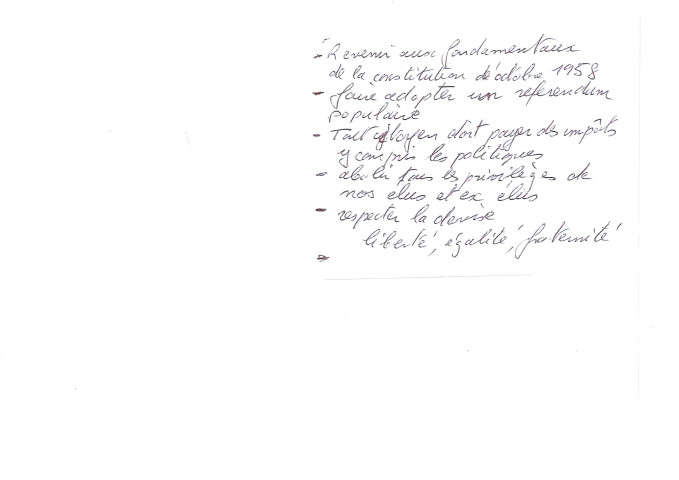 - Revenir aux fondamentaux
de la constitution d'octobre 1958
- faire adopter un référendum
populaire
- Tout citoyen doit payer des impôts
y compris les politiques
- abolir tous les privilèges de
nos élus et ex élus
- respecter la devise
liberté, égalité, fraternité
-